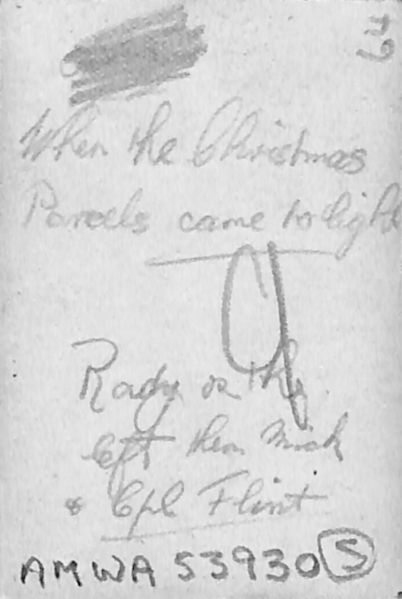 When the Christmas
Parcels came to light
on the
left then Mick
& Cpl Flint
AMWA 53930 S